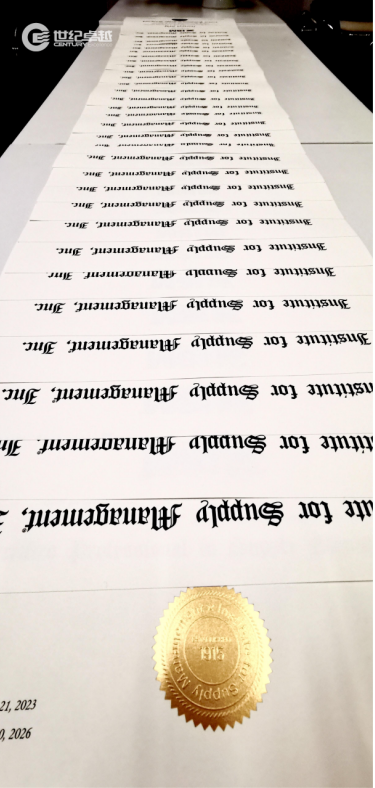 世纪卓越
CENTURY
Institute for Supply Management, Inc.
Institute for Supply Management, Inc.
Institute for Supply Management, Inc.
Institute for Supply Management, Inc.
Institute for Supply Management, Inc.
Institute for Supply Management, Inc.
Institute for Supply Management, Inc.
Institute for Supply Management, Inc.
Institute for Supply Management, Inc.
Institute for Supply Management, Inc.
Institute for Supply Management, Inc.
Institute for Supply Management, Inc.
Institute for Supply Management, Inc.
Institute for Supply Management, Inc.
Institute for Supply Management, Inc.
Institute for Supply Management, Inc.
Institute for Supply Management, Inc.
nstitute for Supply Management, Inc.
titute for Supply Management, In
ute for Supply Management,
Institute for Supply Management
1915
21, 2023
0, 2026